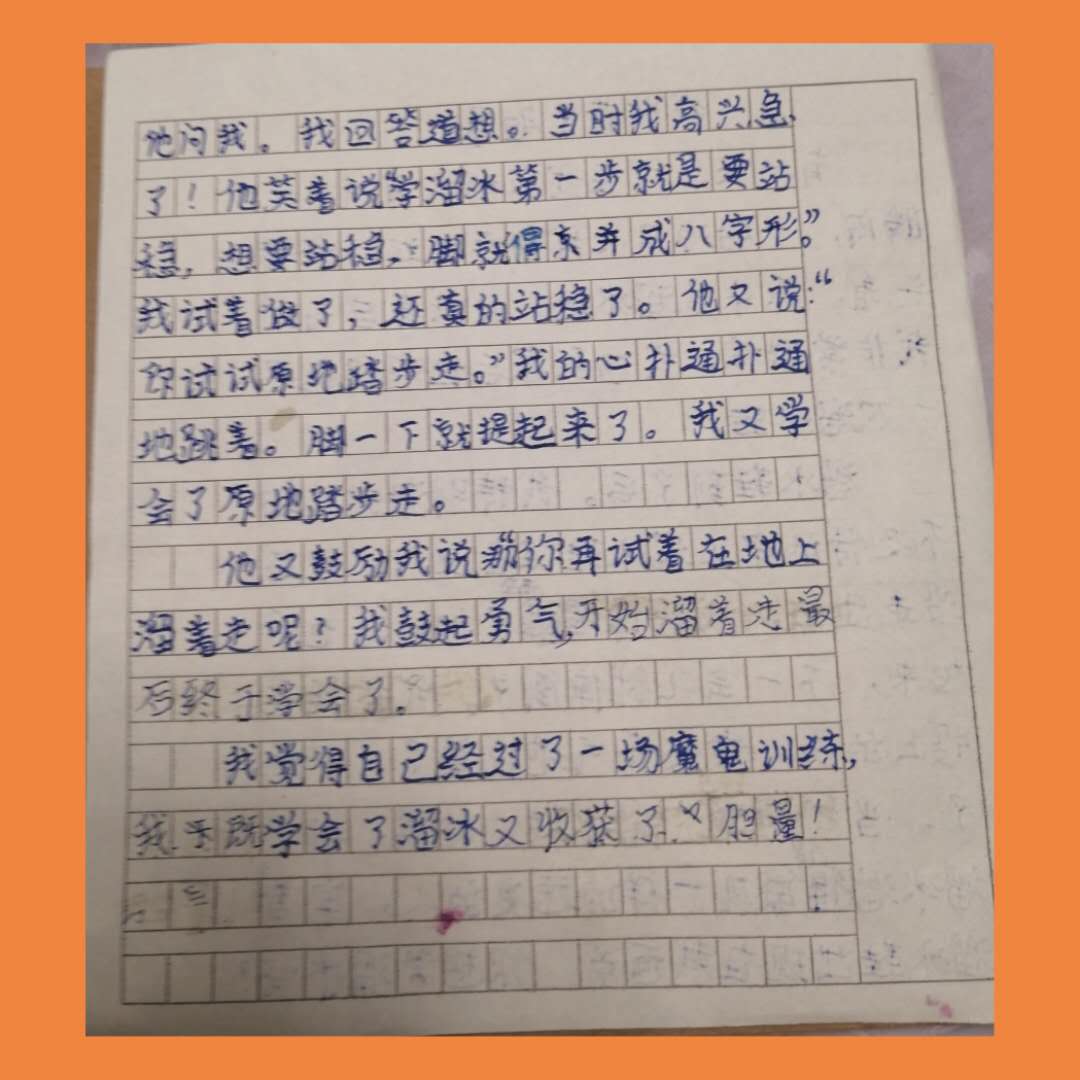 他问我。我回答道想。当时我高兴急
了！他笑着说“学溜冰第一步就是要站
稳，想要站稳，脚就得京并成八字形。”
我试着做了，还真的站稳了。他又说：“
你试试原地踏步走。”我的心扑通扑通
地跳着。脚一下就提起来了。我又学
会了原地踏步走。
他又鼓励我说“那你再试着在地上
溜着走呢？我鼓起勇气，开始溜着走最
后终于学会了。
我觉得自己经过了一场魔鬼训练，
我于既学会了溜冰又收获了胆量！